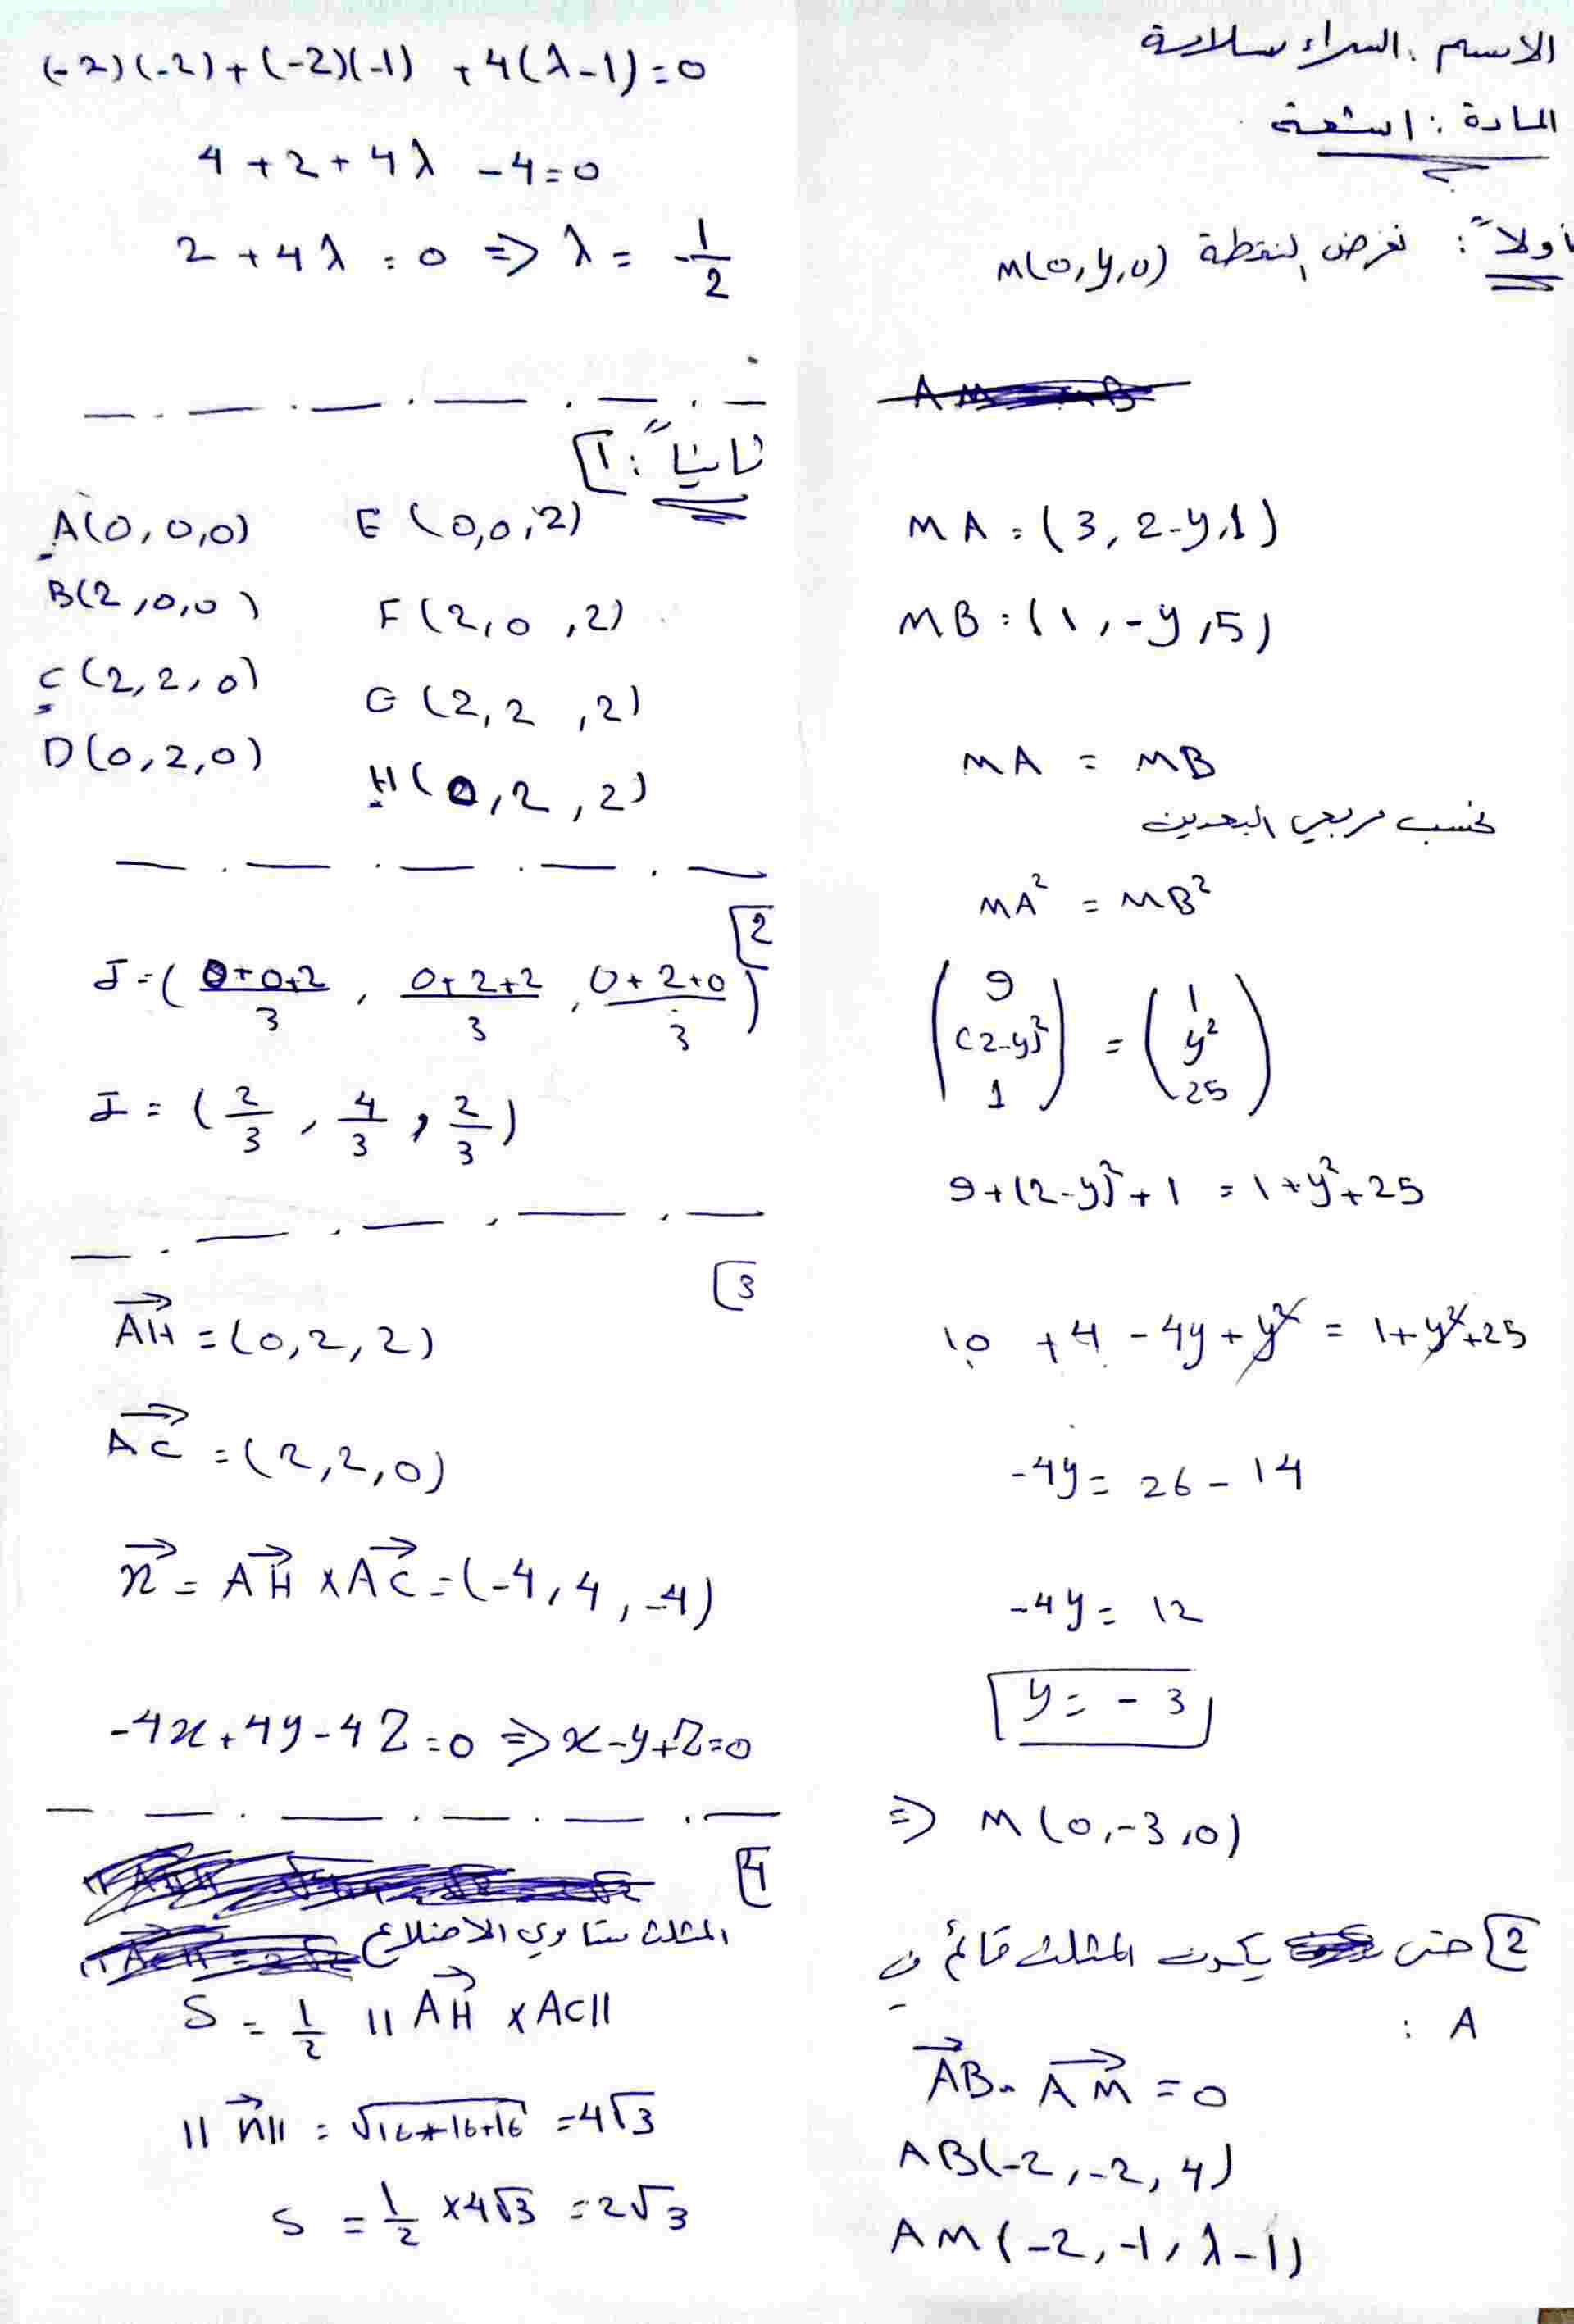 الاسم : السراء سلامة
المادة : اشعة
أولاً : نفرض النقطة M(0,y,0)
MA = (3, 2-y, 1)
MB = (1, -y, 5)
MA = MB
نحسب مربعي البعدين
MA² = MB²
(9, (2-y)², 1) = (1, y², 25)
9+(2-y)²+1 = 1+y²+25
10 + 4 - 4y + y² = 1+y²+25
-4y = 26 - 14
-4y = 12
y = -3
=> M(0,-3,0)
2] حتى يكون المثلث قائم في
A :
AB . AM = 0
AB(-2,-2,4)
AM(-2,-1,λ-1)
(-2)(-2)+(-2)(-1)+4(λ-1)=0
4+2+4λ-4=0
2+4λ=0 => λ = -1/2
ثانياً : 1]
A(0,0,0) E(0,0,2)
B(2,0,0) F(2,0,2)
C(2,2,0) G(2,2,2)
D(0,2,0) H(0,2,2)
2]
I = ( (0+0+2)/3 , (0+2+2)/3 , (0+2+0)/3 )
I = ( 2/3 , 4/3 , 2/3 )
3]
AH = (0,2,2)
AC = (2,2,0)
n = AH × AC = (-4,4,-4)
-4x+4y-4z=0 => x-y+z=0
4]
المثلث متساوي الاضلاع
S = 1/2 ||AH × AC||
||n|| = √16+16+16 = 4√3
S = 1/2 × 4√3 = 2√3